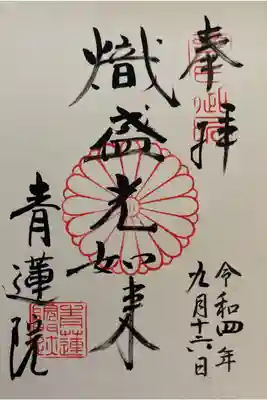 奉拝
令和四年
九月十六日
熾盛光如来
青蓮院